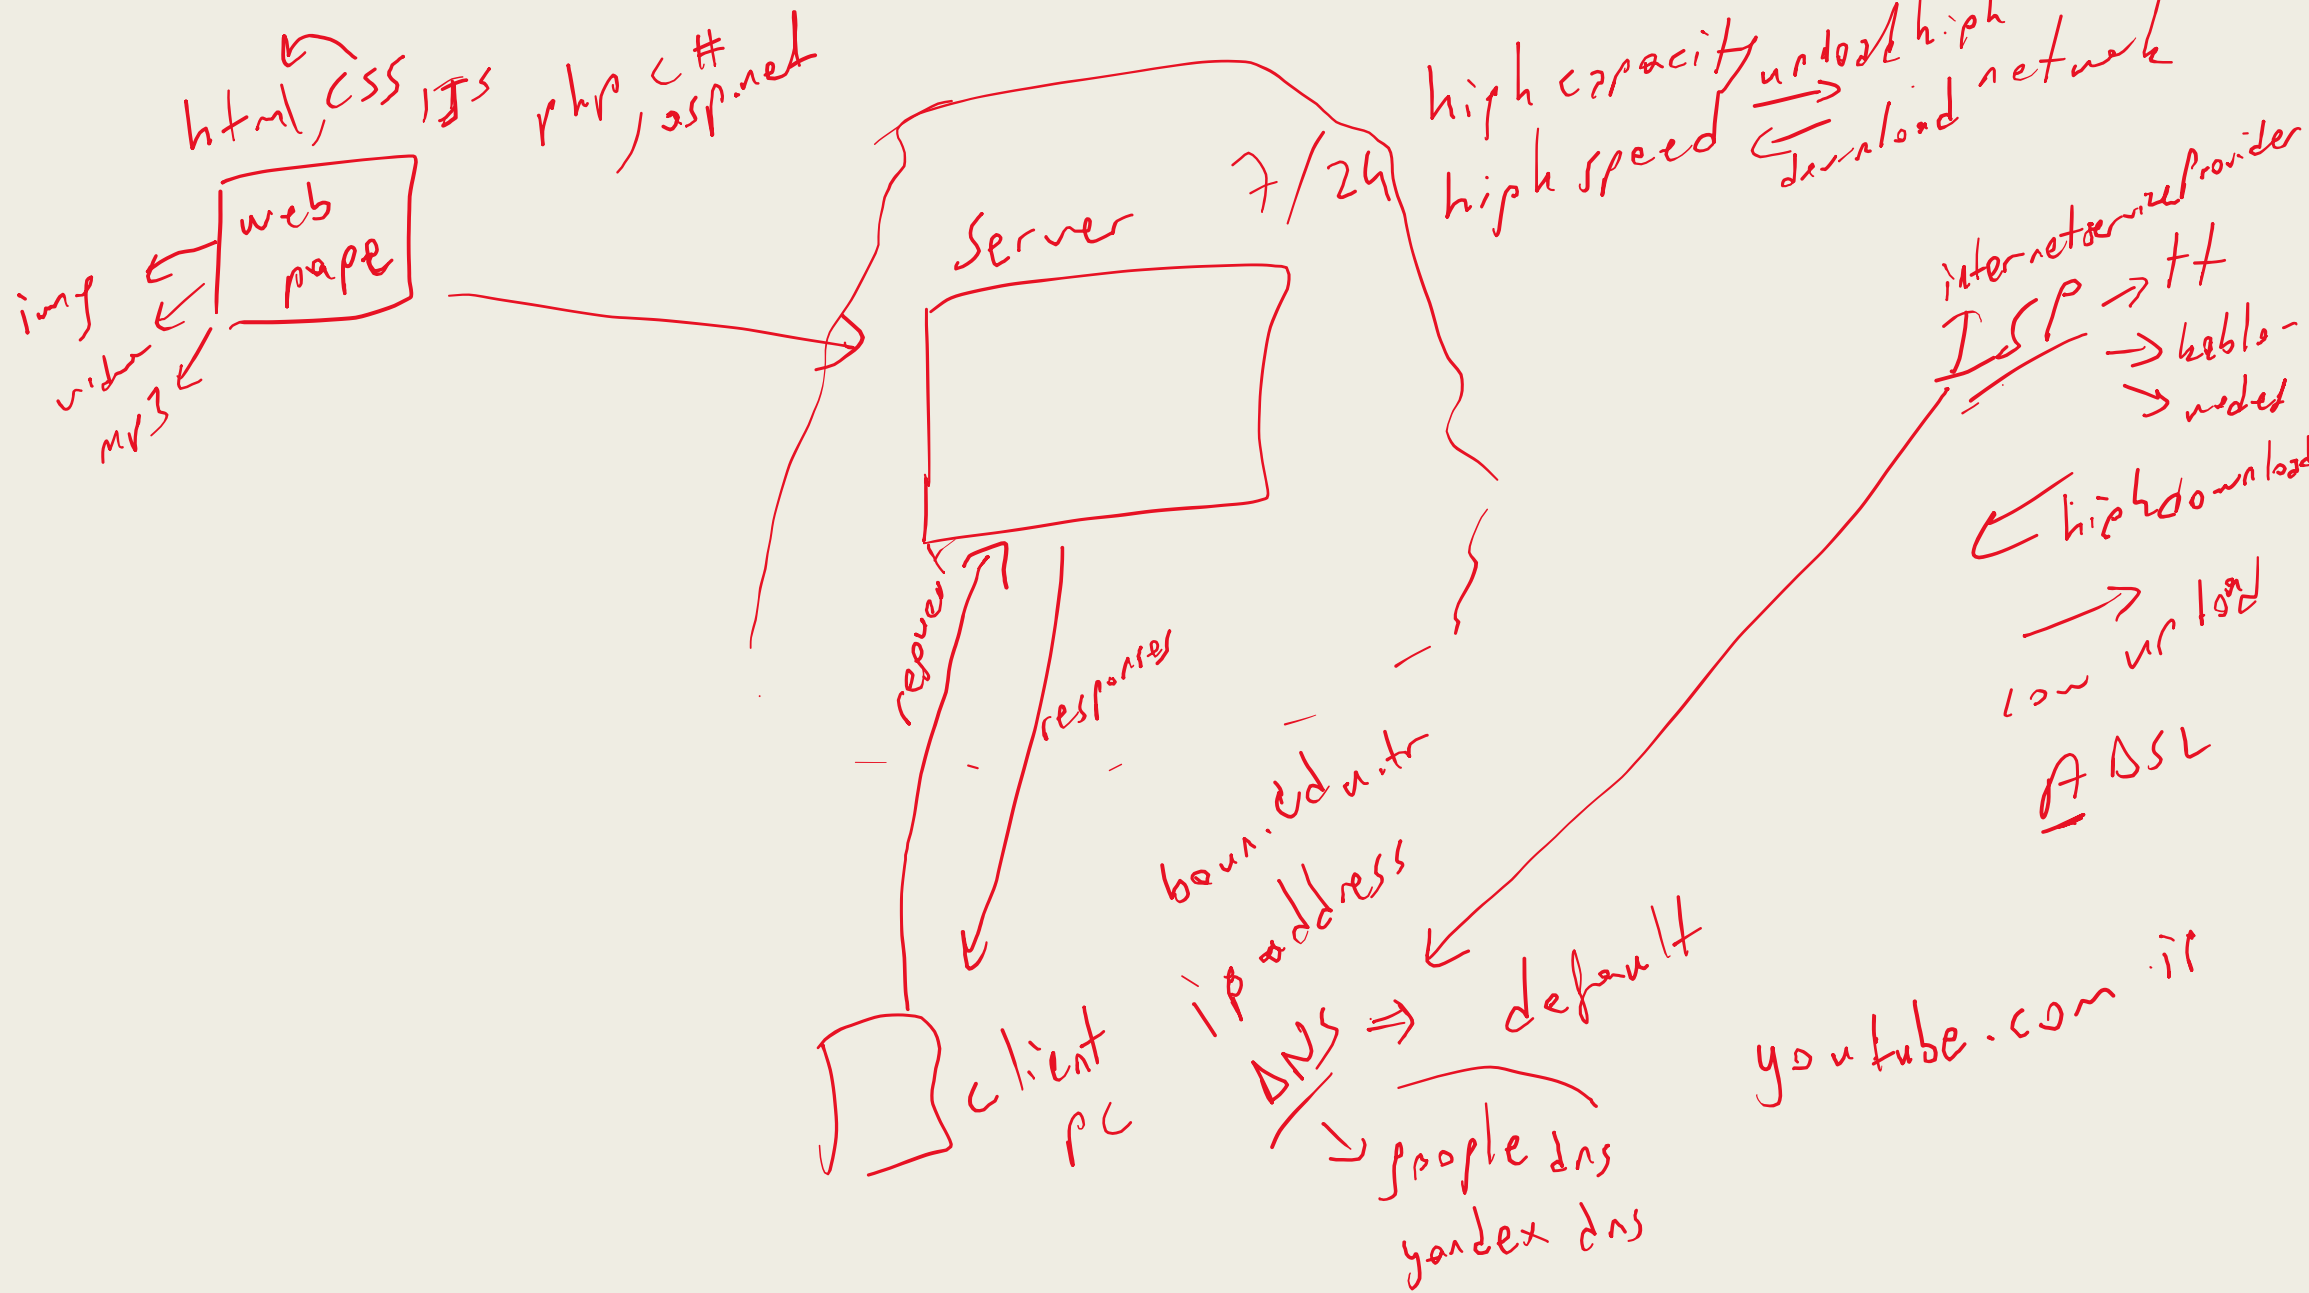 html, css, JS php, c#
asp.net
web
page
img
video
mp3
Server
7/24
high capacity
high speed
upload high
download network
internet service Provider
ISP
tt
kablo-
high download
low upload
ADSL
responses
client
pc
boun.edu.tr
ip address
DNS ⇒ default
google dns
yandex dns
youtube.com